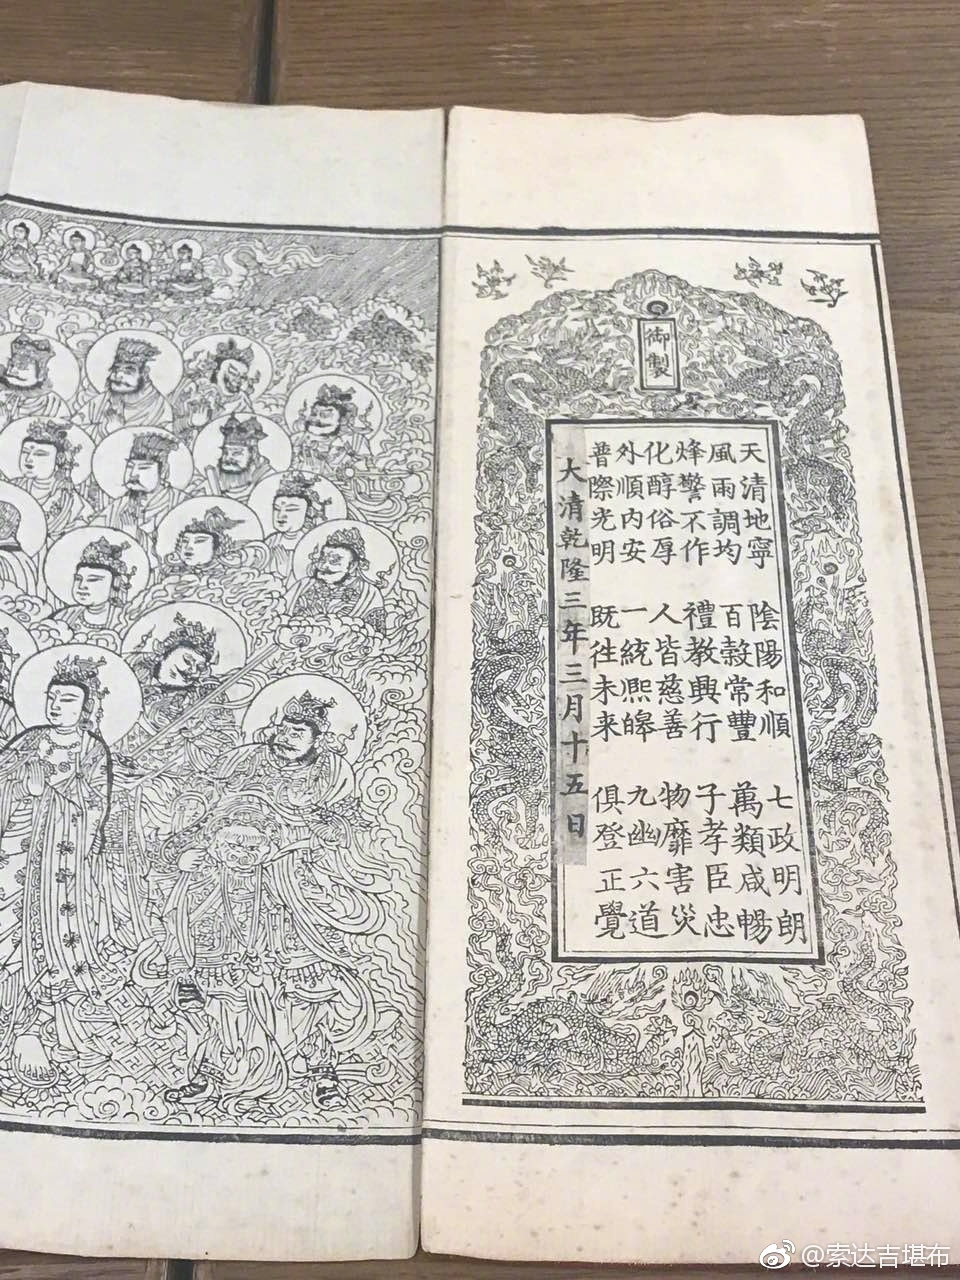 御製
天清地寧 陰陽和順 七政明朗
風雨調均 百穀常豐 萬類咸暢
烽警不作 禮教興行 子孝臣忠
化醇俗厚 人皆慈善 物靡害災
外順內安 一統熈皞 九幽六道
普際光明 既往未来 俱登正覺
大清乾隆三年三月十五日
@索达吉堪布